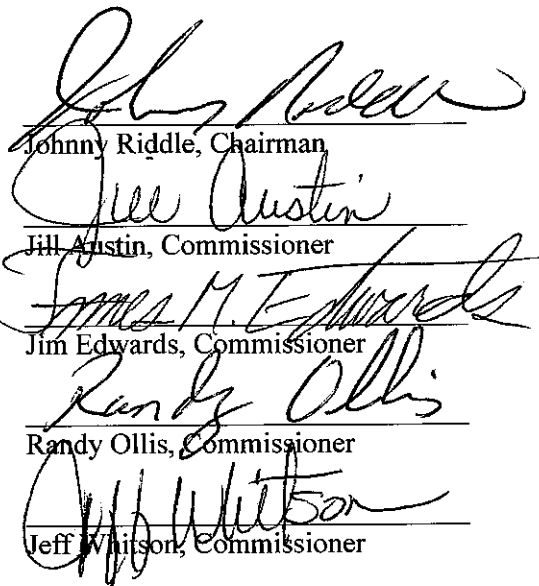 Johnny Riddle
Johnny Riddle, Chairman
Jill Austin
Jill Austin, Commissioner
James M. Edwards
Jim Edwards, Commissioner
Randy Ollis
Randy Ollis, Commissioner
Jeff Whitson
Jeff Whitson, Commissioner